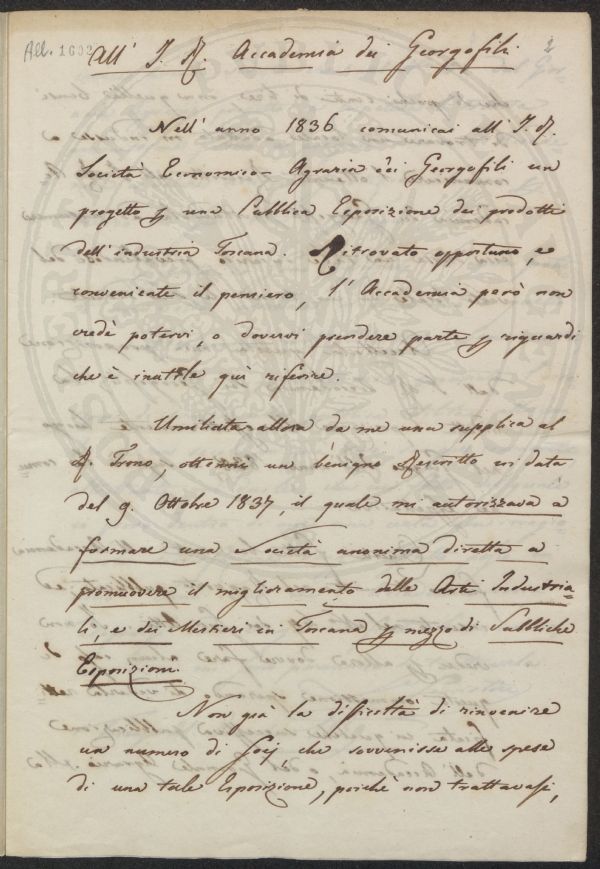 All. 1602
1
All' I. R. Accademia dei Georgofili
Nell' anno 1836 comunicai all' I. R.
Società Economico-Agraria dei Georgofili un
progetto p una Pubblica Esposizione dei prodotti
dell' industria Toscana. Ritrovato opportuno, e
conveniente il pensiero, l' Accademia però non
credè potervi, o dovervi prendere parte p riguardi
che è inutile quì riferire.
Umiliata allora da me una supplica al
R. Trono, ottenni un benigno Rescritto in data
del 9. Ottobre 1837, il quale mi autorizzava a
formare una Società anonima diretta a
promuovere il miglioramento delle Arti Industria-
li, e dei Mestieri in Toscana p mezzo di Pubbliche
Esposizioni.
Non già la difficoltà di rinvenire
un numero di Socj, che sovvenisse alle spese
di una tale Esposizione, poichè non trattavasi,